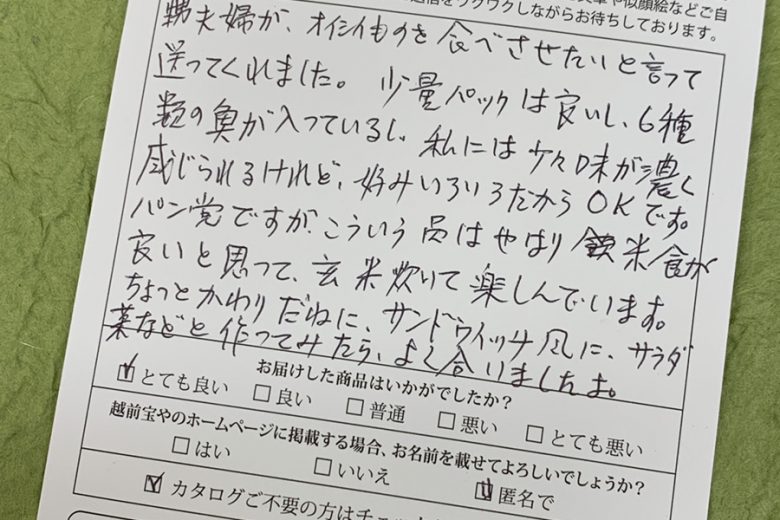 真や似顔絵などご自
返信をワクワクしながらお待ちしております。
甥夫婦が、オイシイものを食べさせたいと言って
送ってくれました。少量パックは良いし、6種
類の魚が入っているし、私には少々味が濃く
感じられるけれど、好みいろいろだからOKです。
パン党ですが、こういう魚はやはり 米食が
良いと思って、玄米炊いて楽しんでいます。
ちょっとかわりだねに、サンドウィッチ風に、サラダ
菜などと作ってみたら、よく合いましたよ。
お届けした商品はいかがでしたか?
とても良い 良い 普通 悪い とても悪い
越前宝やのホームページに掲載する場合、お名前を載せてよろしいでしょうか?
はい いいえ 匿名で
カタログご不要の方はチェッ